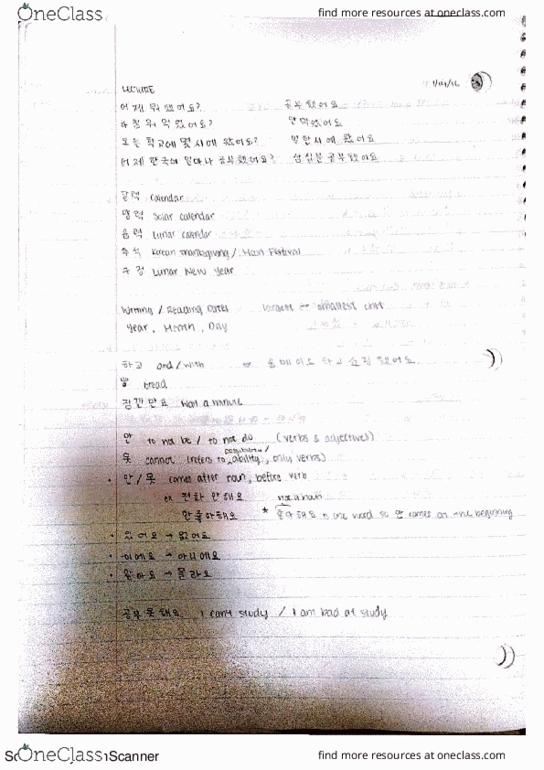 OneClass
find more resources at oneclass.com
LECTURE
어제 뭐 했어요? 공부했어요
아침 뭐 먹었어요? 안 먹었어요
오늘 학교에 몇 시에 왔어요? 열 한시에 왔어요
어제 한국어 얼마나 공부했어요? 삼십분 공부했어요
달력 Calendar
양력 Solar calendar
음력 Lunar calendar
추석 Korean Thanksgiving / Moon Festival
구정 Lunar New Year
Writing / Reading Dates largest smallest unit
Year, Month, Day
하고 and/with 하고 쇼핑 했어요
빵 bread
잠깐만요 Wait a minute
안 to not be / to not do (verbs & adjectives)
못 cannot (refers to possibility/ ability, only verbs)
안/못 comes after noun, before verb
ex 전화 안 해요 not a noun
안 좋아해요 * 좋아해요 is one word so 안 comes at the beginning
있어요 → 없어요
이에요 → 아니에요
알아요 → 몰라요
공부 못 해요 I can't study / I am bad at study
OneClass Scanner
find more resources at oneclass.com